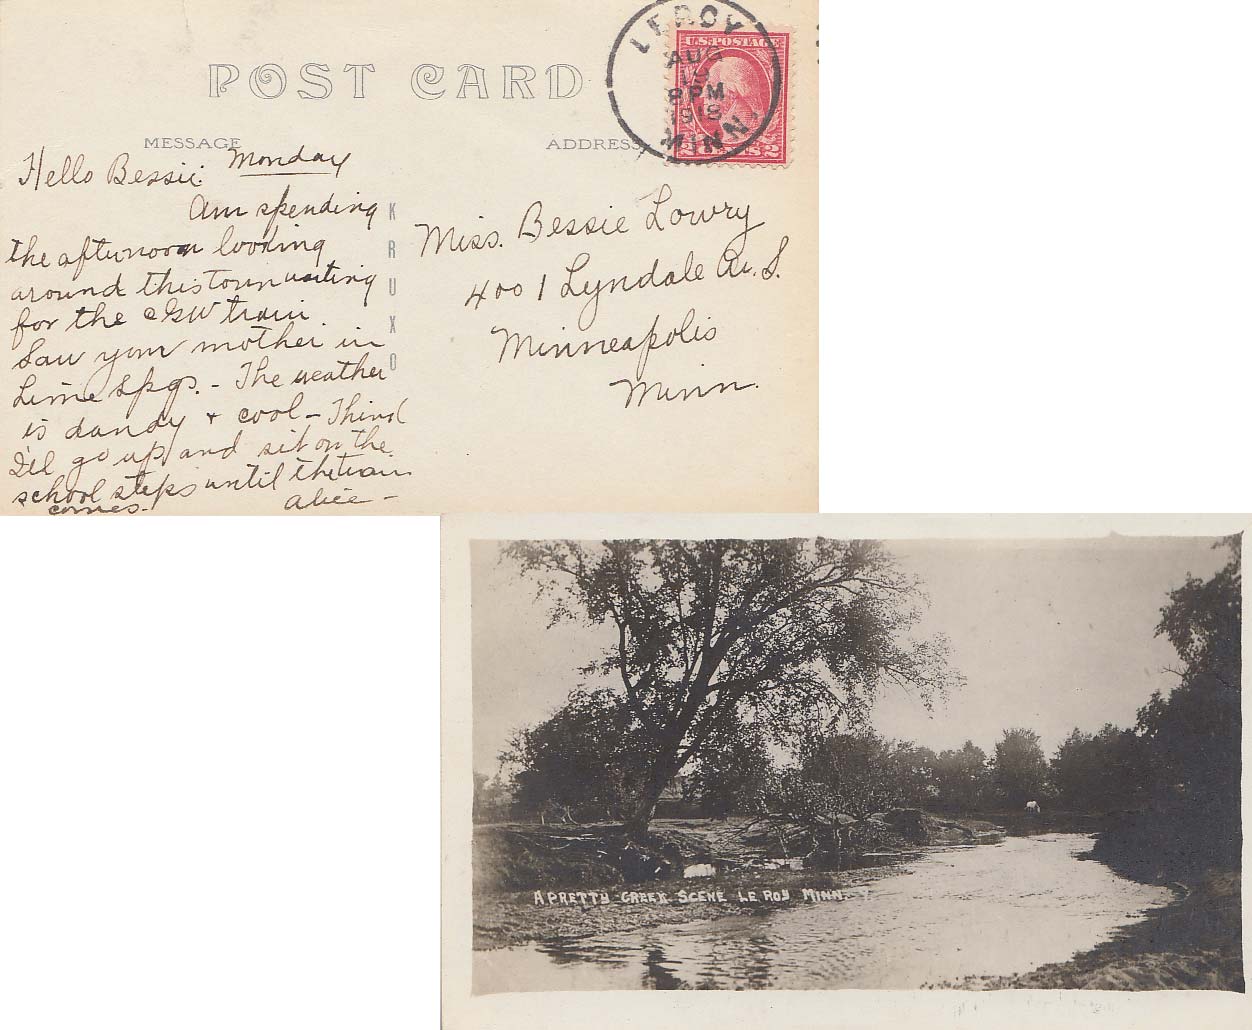 POST CARD
LEROY
AUG
19
8 PM
1918
MINN
U.S. POSTAGE
2 CENTS 2
MESSAGE
ADDRESS
Hello Bessie: Monday
Am spending
the afternoon looking
around this town waiting
for the CGW train.
Saw your mother in
Lime Spgs. - The weather
is dandy + cool - Think
I'll go up and sit on the
school steps until the train
comes. Alice -
KRUXO
Miss. Bessie Lowry
4001 Lyndale Av. S.
Minneapolis
Minn.
A PRETTY CREEK SCENE LE ROY MINN.